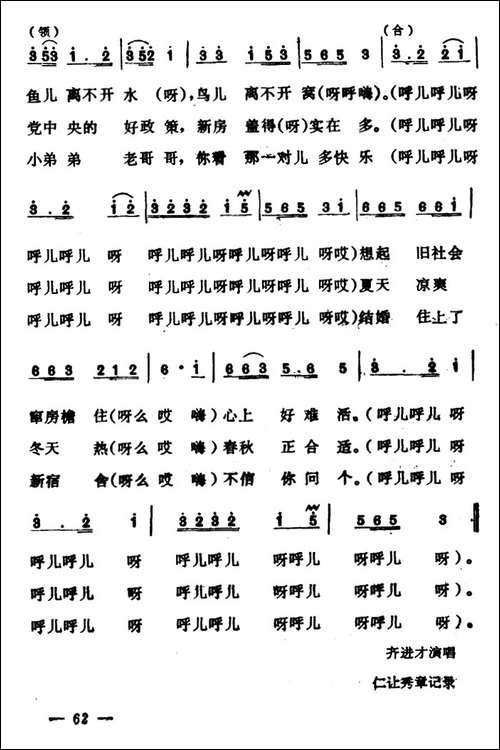 （领） （合）
3 5 3 1 . 2 | 3 5 2 1 | 3 3 1 5 3 | 5 6 5 3 | 3 . 2 2 1 |
鱼儿 离不开 水 （呀），鸟儿 离不开 窝（呀呼嗨）。（呼儿呼儿呀
党中 央的 好政 策，新房 盖得（呀）实在 多。（呼儿呼儿呀
小弟 弟 老哥 哥，你看 那一对儿 多快乐 （呼儿呼儿呀
3 . 2 1 2 | 3 2 3 2 1 5 | 5 6 5 3 | 1 6 5 6 6 1 |
呼儿呼儿 呀 呼儿呼儿呀呼儿呀呼儿 呀哎）想起 旧社会
呼儿呼儿 呀 呼儿呼儿呀呼儿呀呼儿 呀哎）夏天 凉爽
呼儿呼儿 呀 呼儿呼儿呀呼儿呀呼儿 呀哎）结婚 住上了
6 6 3 2 1 2 | 6 · 1 | 6 6 3 5 . 6 5 | 3 . 2 1 |
窜房檐 住（呀么 哎 嗨）心上 好难 活。（呼儿呼儿 呀
冬天 热（呀么 哎 嗨）春秋 正合 适。（呼儿呼儿 呀
新宿 舍（呀么 哎 嗨）不信 你问 个。（呼儿呼儿 呀
3 . 2 1 | 3 2 3 2 1 5 | 5 6 5 3 ‖
呼儿呼儿 呀 呼儿呼儿 呀呼儿 呀呼儿 呀）。
呼儿呼儿 呀 呼儿呼儿 呀呼儿 呀呼儿 呀）。
呼儿呼儿 呀 呼儿呼儿 呀呼儿 呀呼儿 呀）。
齐进才演唱
仁让秀章记录
— 62 —